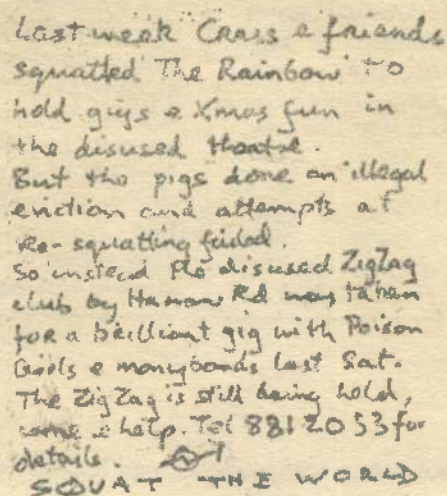 Last week Crass & friends
squatted The Rainbow to
hold gigs & Xmas fun in
the disused theatre.
But the pigs done an illegal
eviction and attempts at
re-squatting failed.
So instead the disused ZigZag
club by Harrow Rd was taken
for a brilliant gig with Poison
Girls & many bands last Sat.
The Zig Zag is still being held,
come & help. Tel 881 20 53 for
details.
SQUAT THE WORLD